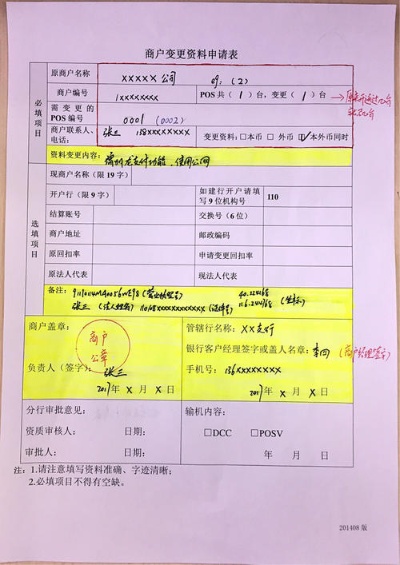 商户变更资料申请表
必填项目
原商户名称 XXXXX公司 (2)
商户编号 1xxxxxxxx POS共(1)台，变更(1)台
需变更的POS编号 0001 (0002)
商户联系人、电话： 张三 138xxxxxxxx 变更资料：□本币 □外币 ☑本外币同时
资料变更内容： 支付功能、使用公网
选填项目
现商户名称（限19字）
开户行（限9字） 如建行开户请填写9位机构号 110
结算账号 交换号（6位）
商户地址 邮政编码
原回扣率 申请变更回扣率
原法人代表 现法人代表
备注：
张三
商户盖章： 管辖行名称：XX支行
商户公章
银行客户经理签字或盖人名章：李四（客户经理签字）
负责人（签字）：张三 手机号：136xxxxxxxx
2017年 X 月 X 日 2017年 X 月 X 日
分行审批意见： 输机内容：
资质审核人： 日期： □DCC □POSV
审批人： 日期： 年 月 日
注：1.请注意填写资料准确、字迹清晰；
2.必填项目不得有空缺。
201408 版